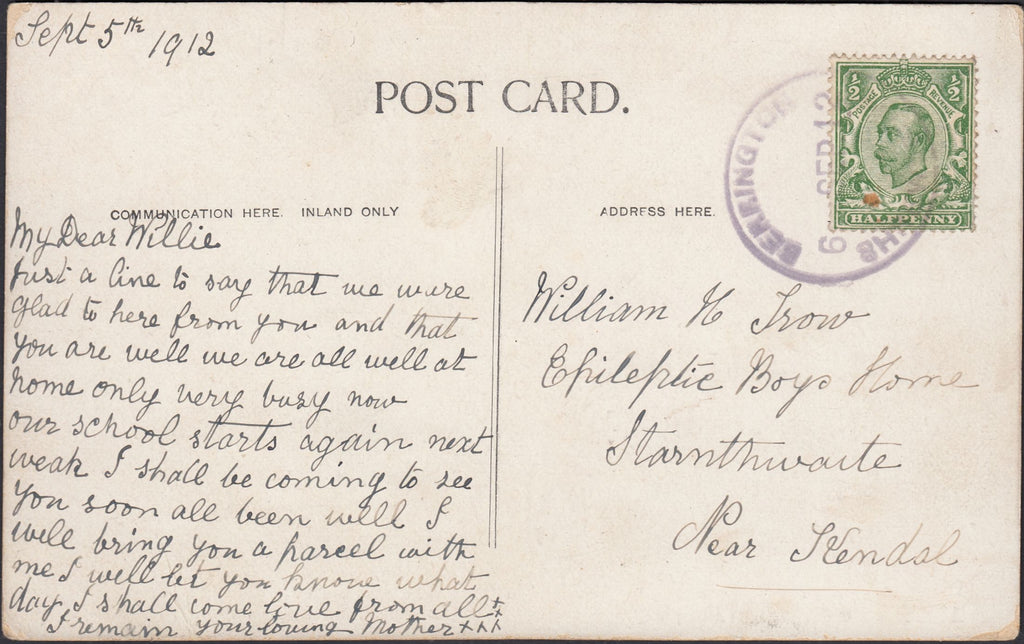 Sept 5th 1912
POST CARD.
COMMUNICATION HERE. INLAND ONLY
ADDRESS HERE.
My Dear Willie
Just a line to say that we were
glad to here from you and that
you are well we are all well at
home only very busy now
our school starts again next
weak I shall be coming to see
you soon all been well I
well bring you a parcel with
me I well let you know what
day I shall come love from all
I remain your loving Mother xxx
BERRINGTON
SEP 12
6
½ ½
POSTAGE REVENUE
HALFPENNY
William H Trow
Epileptic Boys Home
Starnthwaite
Near Kendal